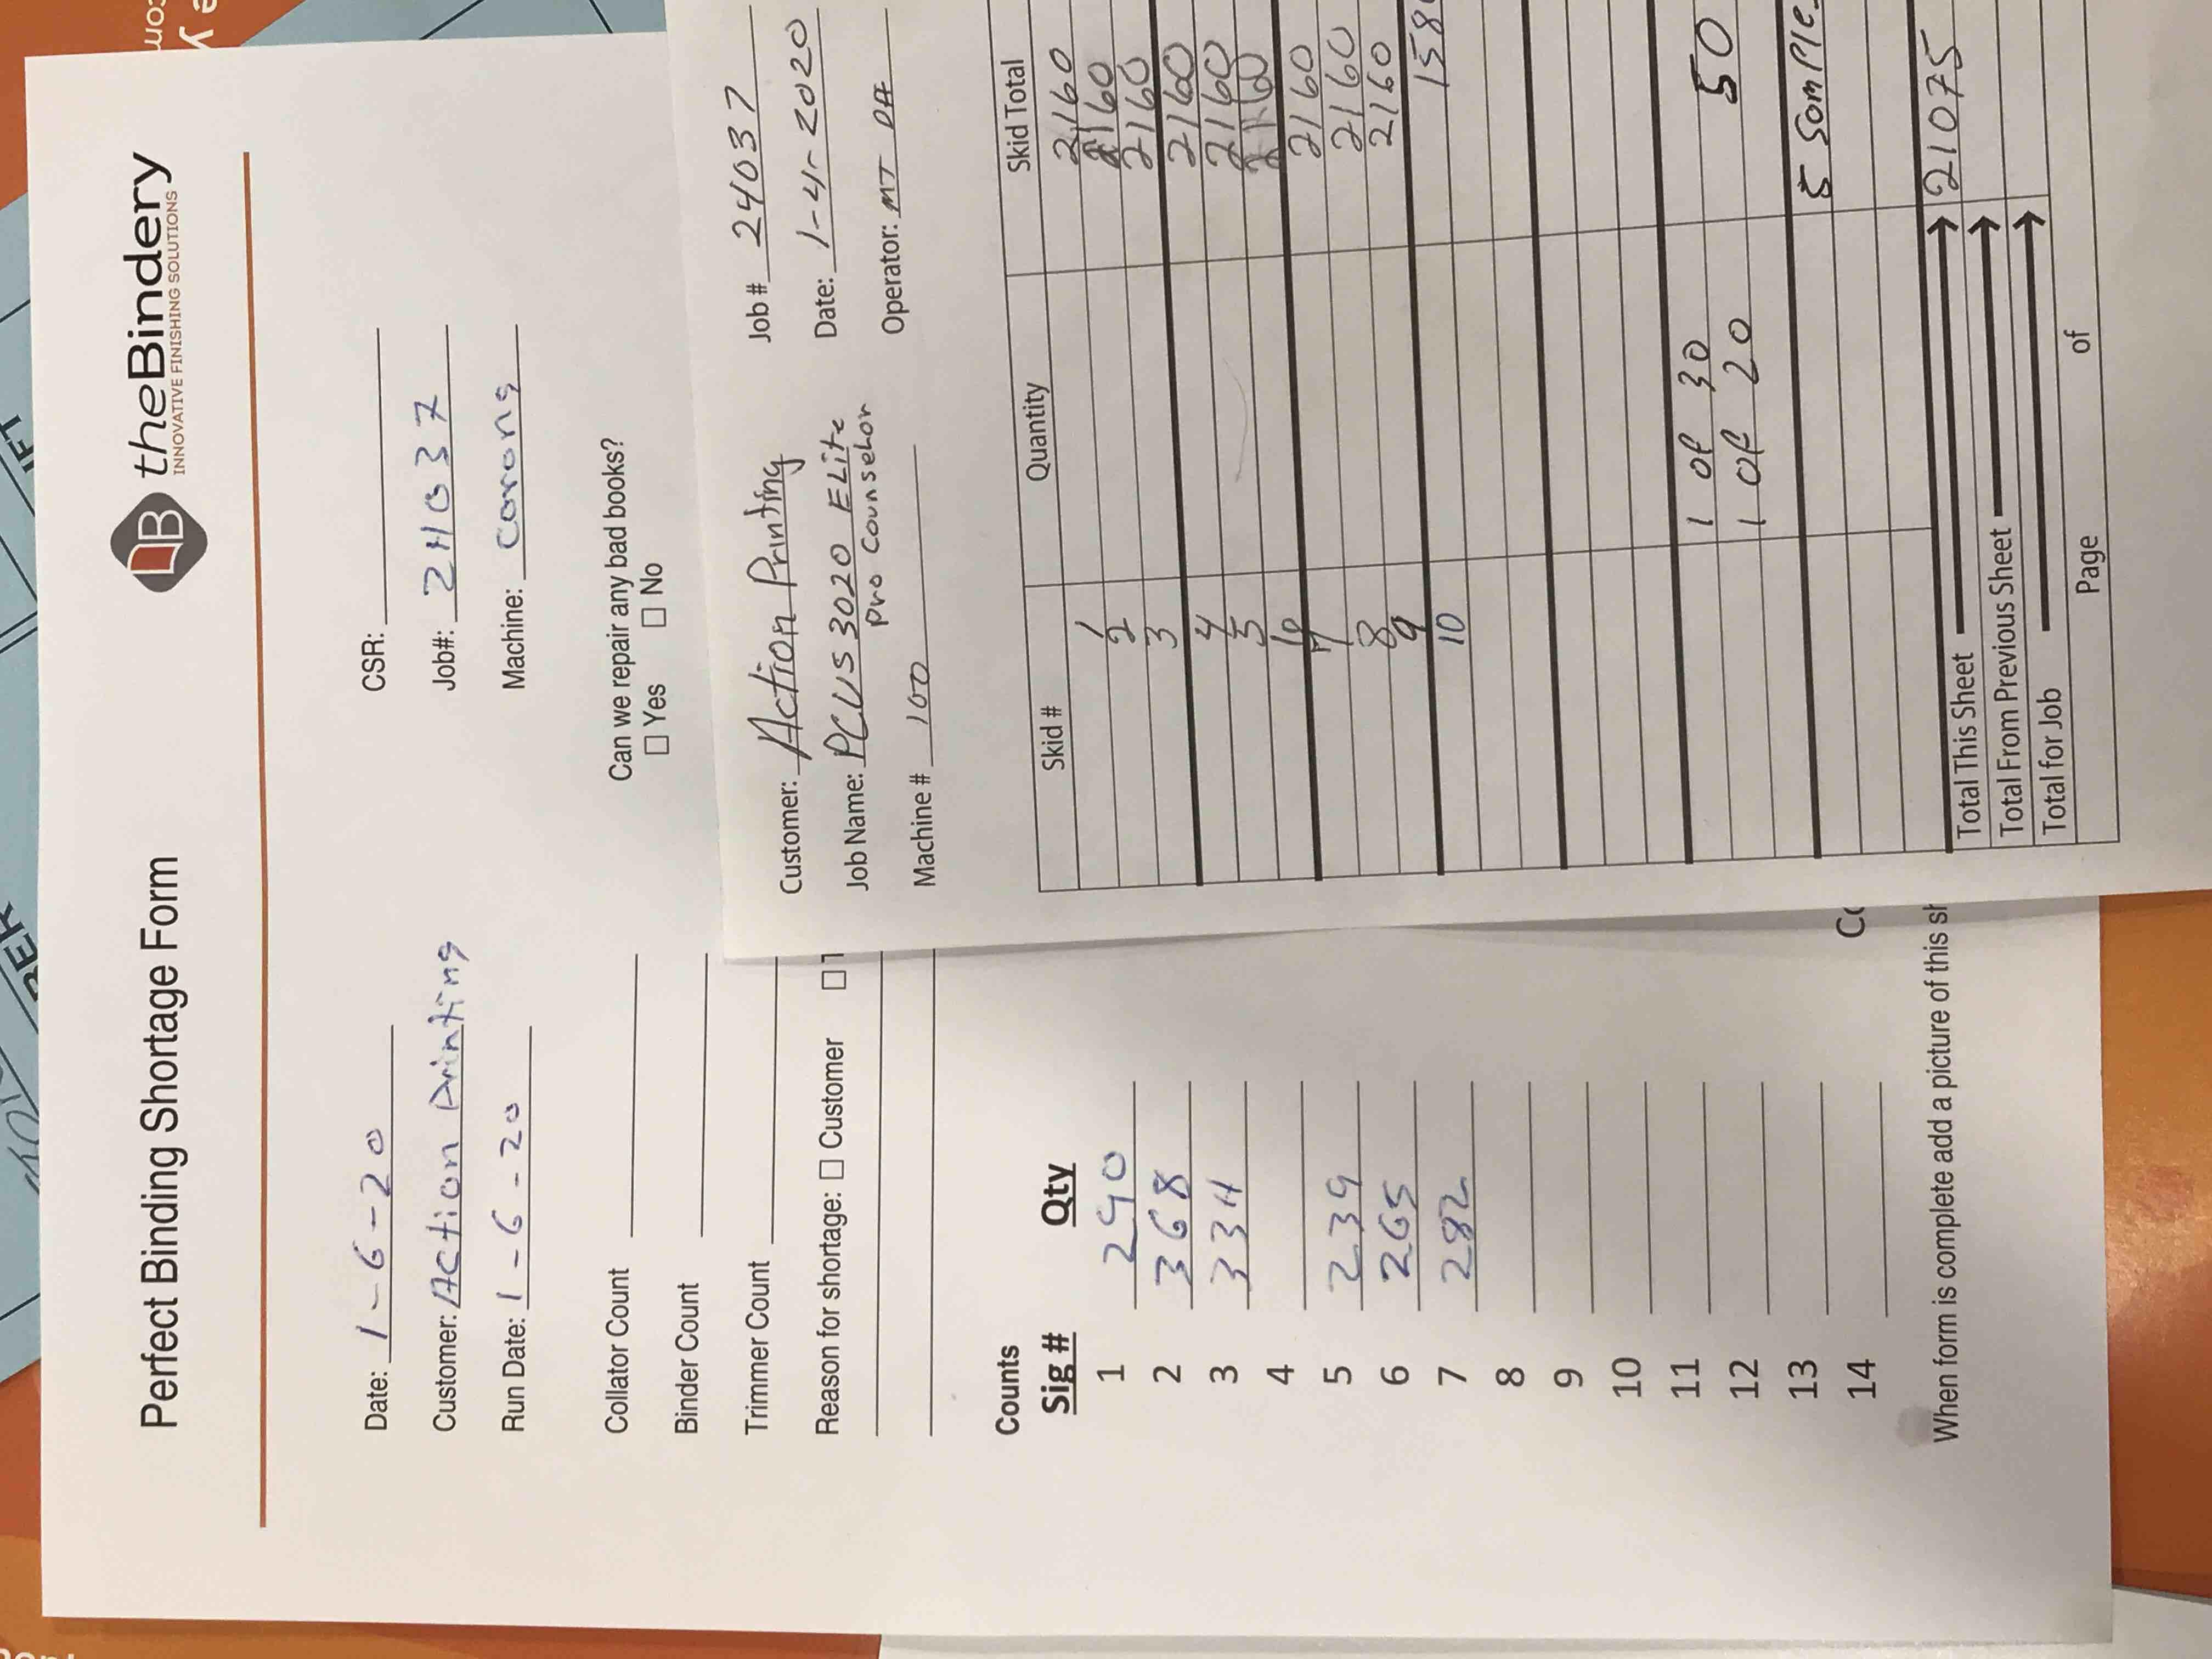 Perfect Binding Shortage Form
theBindery
INNOVATIVE FINISHING SOLUTIONS
Date: 1-6-20
CSR:
Customer: Action Printing
Job#: 24037
Run Date: 1-6-20
Machine: Corona
Collator Count
Can we repair any bad books?
Binder Count
□ Yes □ No
Trimmer Count
Reason for shortage: □ Customer □
Counts
Sig # Qty
1 290
2 368
3 334
4
5 239
6 265
7 282
8
9
10
11
12
13
14
When form is complete add a picture of this
Customer: Action Printing Job # 24037
Job Name: PCUS 3020 ELite Date: 1-4-2020
Pro Counselor
Machine # 100 Operator: MT
Skid # Quantity Skid Total
1 2160
2 2160
3 2160
4 2160
5 2160
6 2160
7 2160
8 2160
9 2160
10 158
1 of 30
1 of 20 50
5 Somple
Total This Sheet 21075
Total From Previous Sheet
Total for Job
Page of